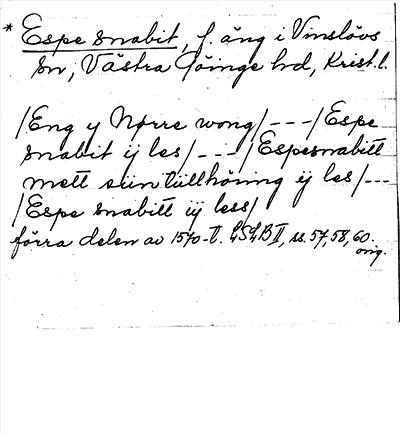 * Espe snabit, f. äng i Vinslövs
sn, Västra Göinge hd, Krist. l.
/Eng y Nørre wong/ - - - /Espe
snabit ij les/ - - - /Espesnabitt
mett siin tiillhöring ij les/ - - -
/Espe snabitt iij less/
förra delen av 1570-t. LSLB II, ss. 57, 58, 60.
orig.